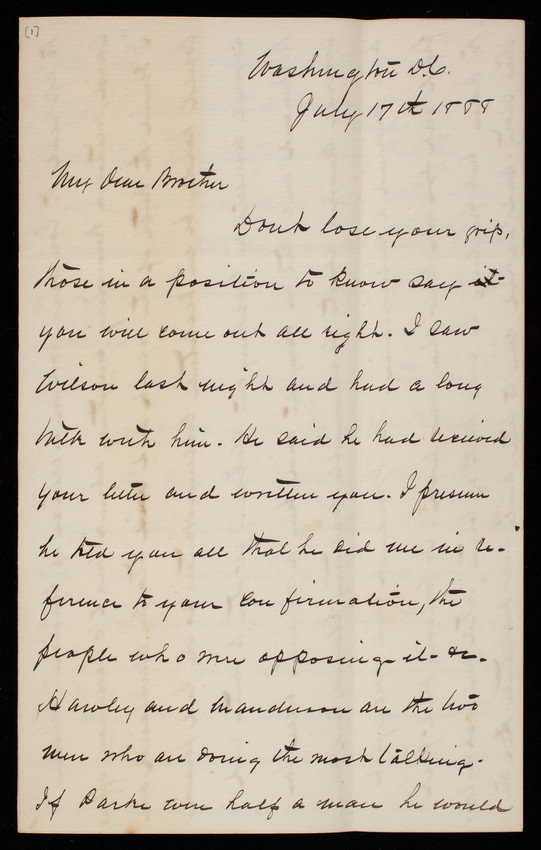 [1]
Washington D.C.
July 17th 1888
My Dear Brother
Dont lose your grip,
those in a position to know say it
you will come out all right. I saw
Wilson last night and had a long
talk with him. He said he had received
your letter and written you. I presume
he told you all that he did me in re-
ference to your confirmation, the
people who were opposing it &c.
Hawley and Manderson are the two
men who are doing the most talking.
If Parke were half a man he would